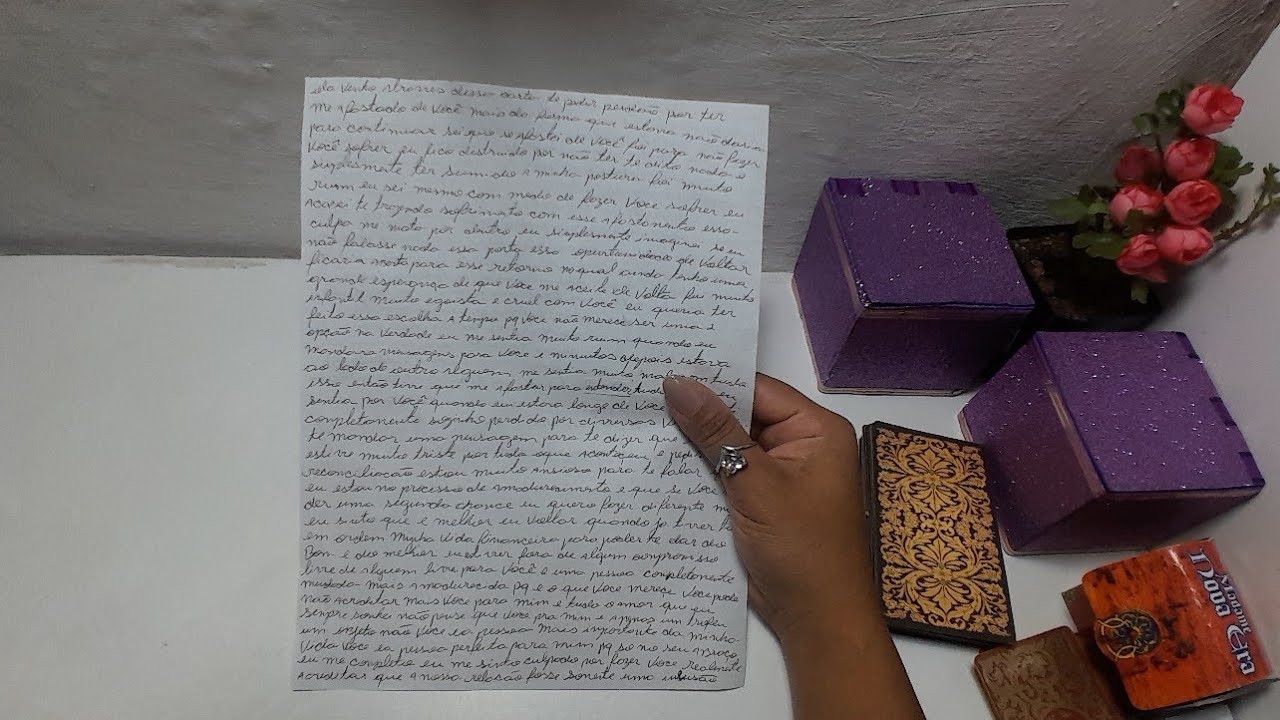 venho através dessa carta te pedir perdão por ter
me afastado de você mais da forma que estava não daria
para continuar sei que se afasta de você foi para não fazer
você sofrer eu fico destruido por não ter te dito nada e
simplesmente ter sumido a minha postura foi muito
ruim eu sei mesmo com medo de fazer você sofrer eu
acabei te trazendo sofrimento com esse afastamento essa
culpa me mata por dentro eu simplesmente imaginei se eu
não falasse nada essa porta essa oportunidade de voltar
ficaria aberta para esse retorno no qual ainda tenho uma
grande esperança de que você me aceite de volta fui muito
infantil muito egoista e cruel com você eu queria ter
feito essa escolha a tempo pq você não merece ser uma 2
opção na verdade eu me sentia muito ruim quando eu
mandava mensagens para você e minutos depois estava
ao lado de outro alguem me sentia muito mal
isso então tive que me afastar para entender
sentia por você quando eu estava longe de você
completamente sozinho perdido por diversas
te mandar uma mensagem para te dizer que
estive muito triste por tudo o que aconteceu e
reconciliação estou muito ansioso para te falar
eu estou no processo de amadurecimento e que se você
der uma segunda chance eu quero fazer diferente
eu sinto que é melhor eu voltar quando já tiver
em ordem minha vida financeira para poder te dar do
Bom e do melhor eu estiver fora de algum compromisso
livre de alguem livre para você e uma pessoa completamente
mudada mais amadurecida pq é o que você merece você pode
não acreditar mais você para mim é tudo o amor que eu
sempre sonhei não pense que você pra mim é apenas um troféu
um objeto não você é a pessoa mais importante da minha
vida você é a pessoa perfeita para mim pq só no seu abraço
eu me completo eu me sinto culpado por fazer você realmente
acreditar que a nossa relação fosse somente uma ilusão
Nova Era